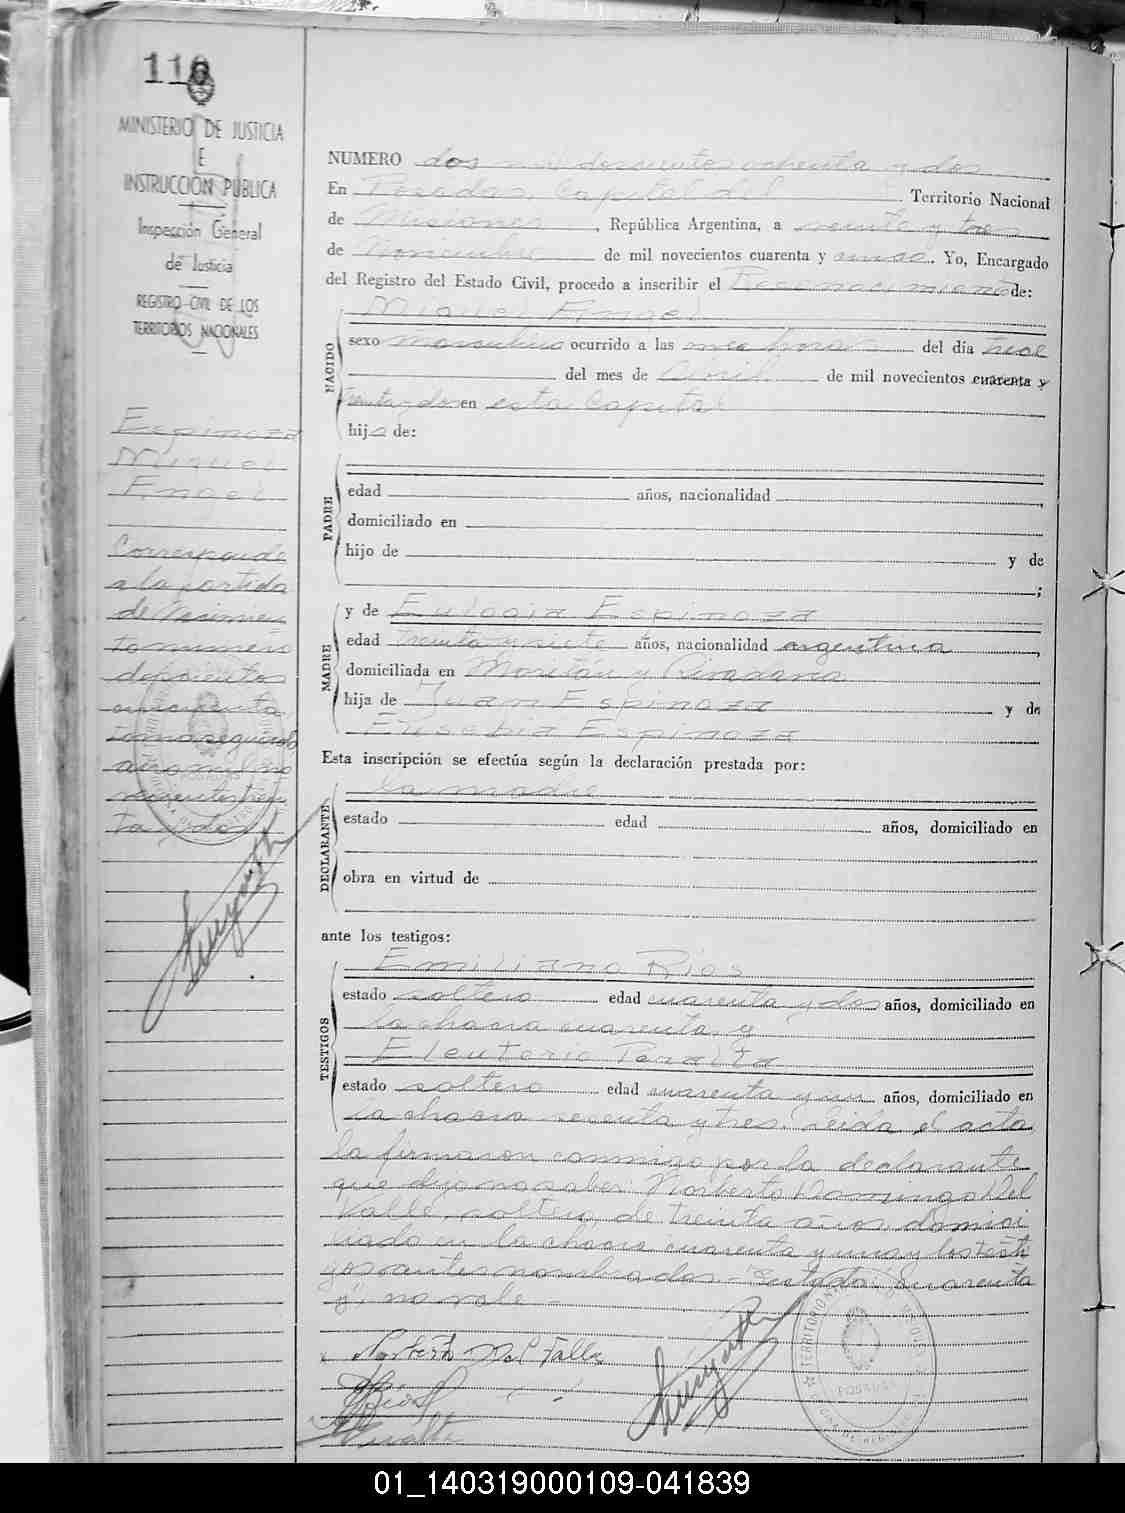 118
MINISTERIO DE JUSTICIA
E
INSTRUCCIÓN PUBLICA
Inspección General
de Justicia
REGISTRO CIVIL DE LOS
TERRITORIOS NACIONALES
Espinoza
Miguel
Angel
Corresponde
a la partida
de Nacimien
to numero
doscientos
cincuenta
tomo segundo
año mil no
vecientos trein
ta y dos
NUMERO dos mil doscientos ochenta y dos
En Posadas, Capital del Territorio Nacional
de Misiones, República Argentina, a veinte y tres
de Noviembre de mil novecientos cuarenta y uno. Yo, Encargado
del Registro del Estado Civil, procedo a inscribir el Reconocimiento de:
NACIDO
Miguel Angel
sexo masculino ocurrido a las horas del día trece
del mes de Abril de mil novecientos cuarenta y
treinta y dos en esta Capital
hijo de:
PADRE
edad años, nacionalidad
domiciliado en
hijo de y de
;
MADRE
y de Eulogia Espinoza
edad treinta y siete años, nacionalidad argentina
domiciliada en y Rivadavia
hija de Juan Espinoza y de
Eusebia Espinoza
Esta inscripción se efectúa según la declaración prestada por:
DECLARANTE
la madre
estado edad años, domiciliado en
obra en virtud de
ante los testigos:
TESTIGOS
Emiliano Rios
estado soltero edad cuarenta y dos años, domiciliado en
la chacra cuarenta, y
Eleuterio Peralta
estado soltero edad cuarenta y un años, domiciliado en
la chacra y tres. Leida el acta
la firmaron conmigo por la declarante
que dijo no saber: Norberto Domingo Del
Valle, soltero, de treinta años, domici
liado en la chacra cuarenta y una y los testi
gos antes nombrados.- Testado: "cuarenta
y", no vale.
Norberto Del Valle
Rios
Peralta
01_140319000109-041839